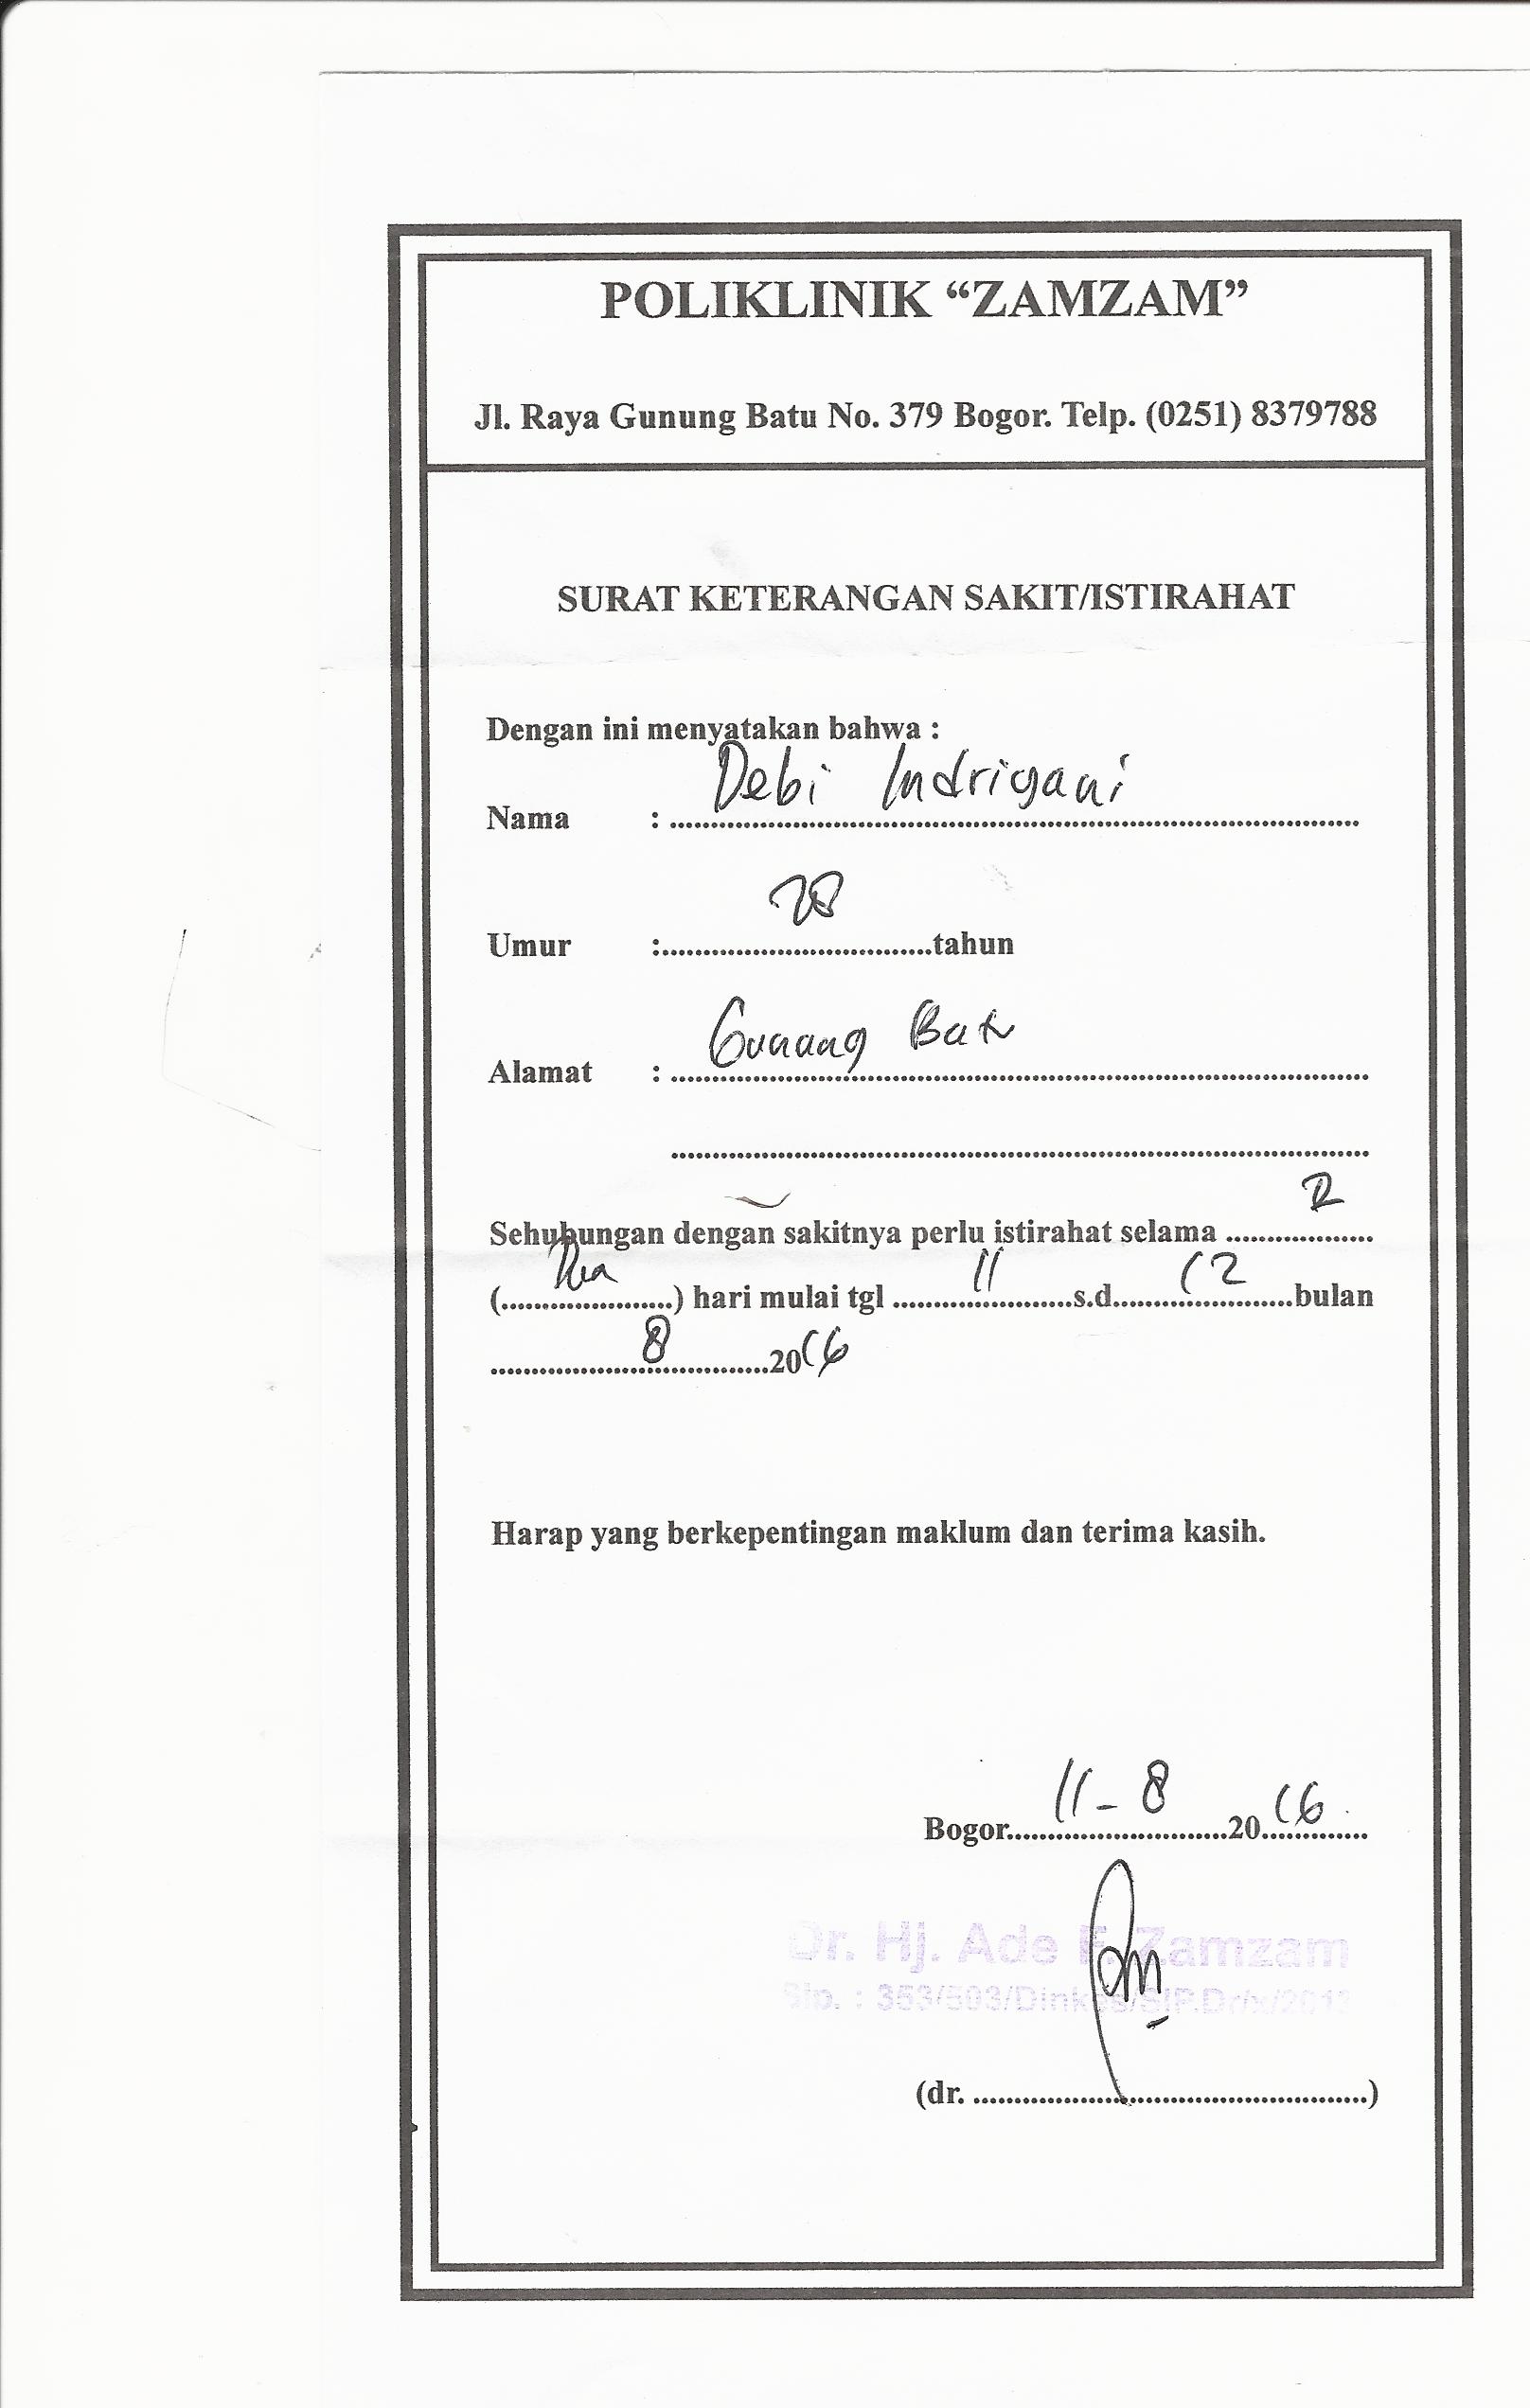 POLIKLINIK “ZAMZAM”
Jl. Raya Gunung Batu No. 379 Bogor. Telp. (0251) 8379788
SURAT KETERANGAN SAKIT/ISTIRAHAT
Dengan ini menyatakan bahwa :
Nama : Debi Indriyani
Umur : 28 tahun
Alamat : Gunung Batu
Sehubungan dengan sakitnya perlu istirahat selama 2
(Dua) hari mulai tgl 11 s.d. 12 bulan
8 2016
Harap yang berkepentingan maklum dan terima kasih.
Bogor 11-8 2016
Dr. Hj. Ade F. Zamzam
Sip. : 353/593/Dinkes/SIP.Dr/x/201
(dr. )